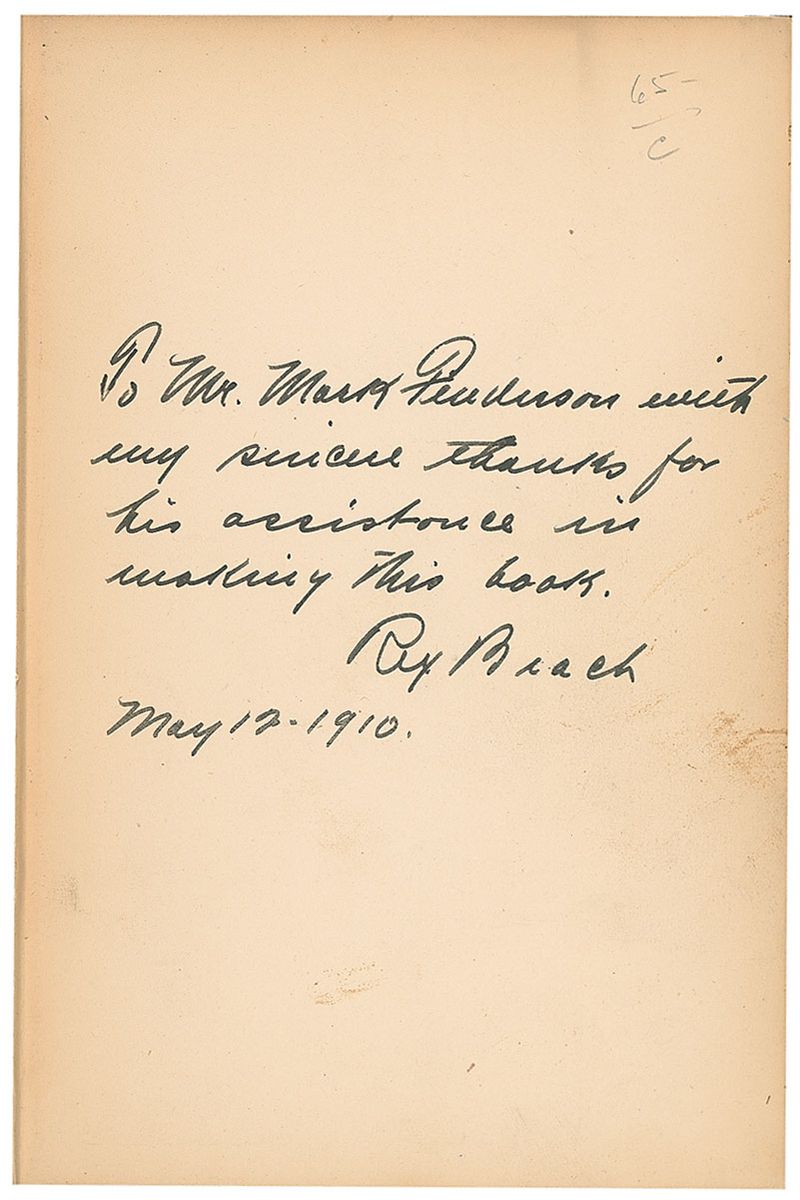 65-
C
To Mr. Mark Fenderson with
my sincere thanks for
his assistance in
making this book.
Rex Beach
May 12-1910.